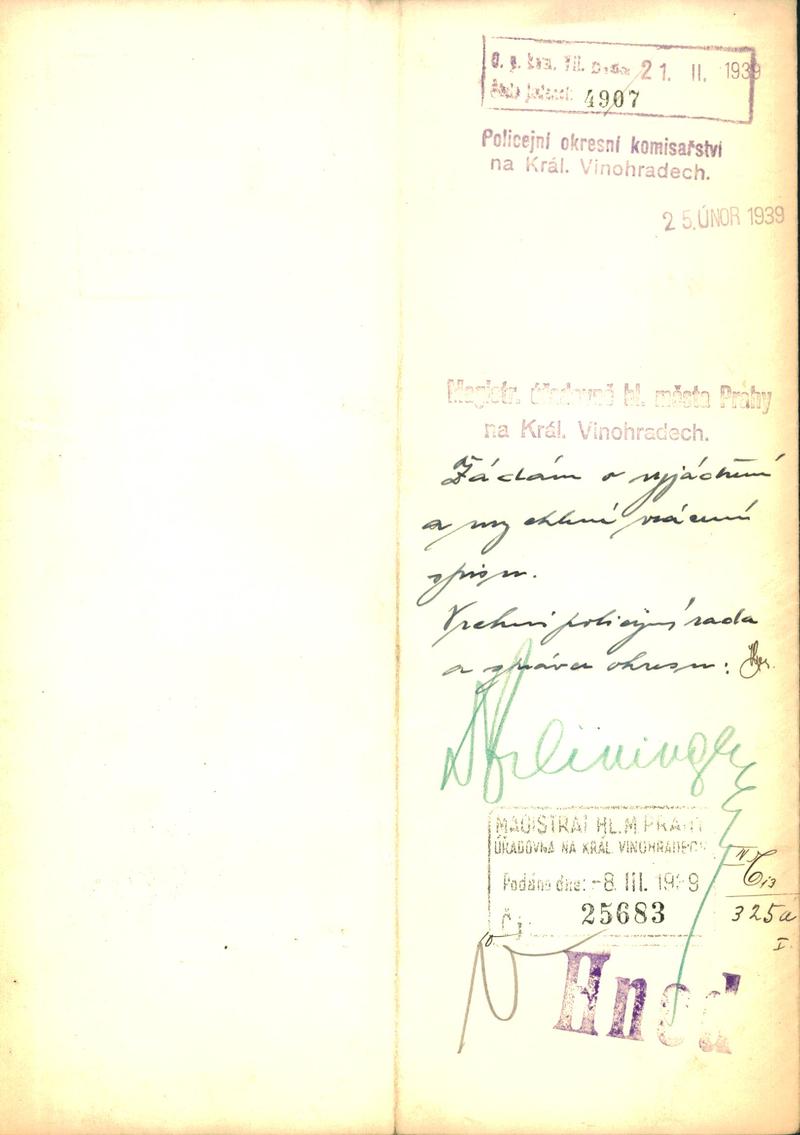 21. II. 1939
4907
Policejní okresní komisařství
na Král. Vinohradech.
25. ÚNOR 1939
Magistr. úřadovně hl. města Prahy
na Král. Vinohradech.
Žádám o vyjádření
a urychlené vrácení
spisu.
Vrchní policejní rada
a správce okresu:
MAGISTRÁT HL. M. PRAHY
ÚŘADOVNA NA KRÁL. VINOHRADECH
Podáno dne: -8. III. 1939
Č. j. 25683
325a
I.
Hned